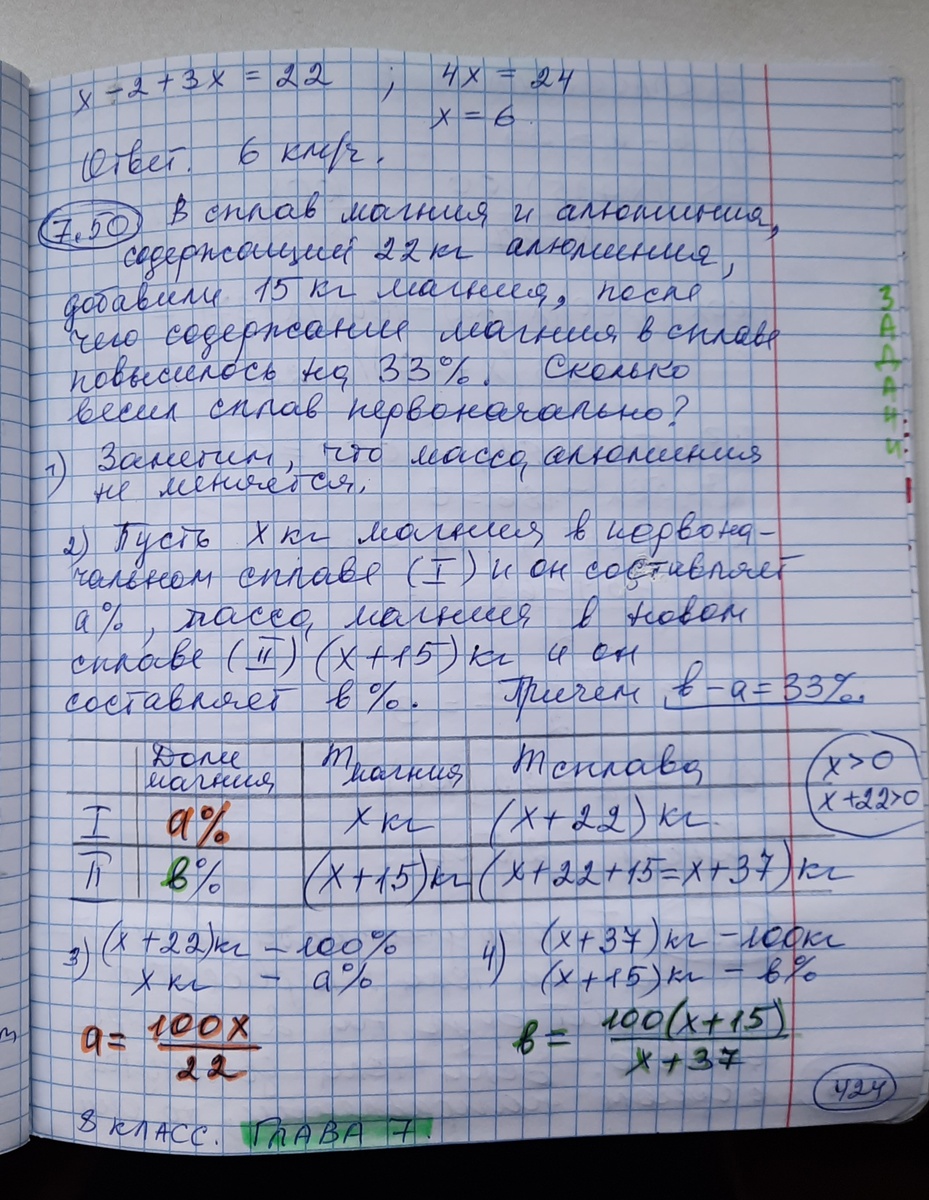 x - 2 + 3x = 22 ; 4x = 24
x = 6
Ответ. 6 км/ч.
7.50 В сплав магния и алюминия,
содержащий 22 кг алюминия,
добавили 15 кг магния, после
чего содержание магния в сплаве
повысилось на 33%. Сколько
весил сплав первоначально?
1) Заметим, что масса алюминия
не меняется.
2) Пусть x кг магния в первона-
чальном сплаве (I) и он составляет
а%, масса магния в новом
сплаве (II) (x+15) кг и он
составляет в%. Причем в-а=33%.
Доли магния | m магния | m сплава
x>0
x+22>0
I | а% | x кг | (x+22) кг.
II | в% | (x+15) кг | (x+22+15=x+37) кг
3) (x+22) кг - 100%
x кг - а%
4) (x+37) кг - 100кг
(x+15) кг - в%
а = 100x / 22
в = 100(x+15) / x+37
424
8 КЛАСС. ГЛАВА 7.
ЗАДАЧИ